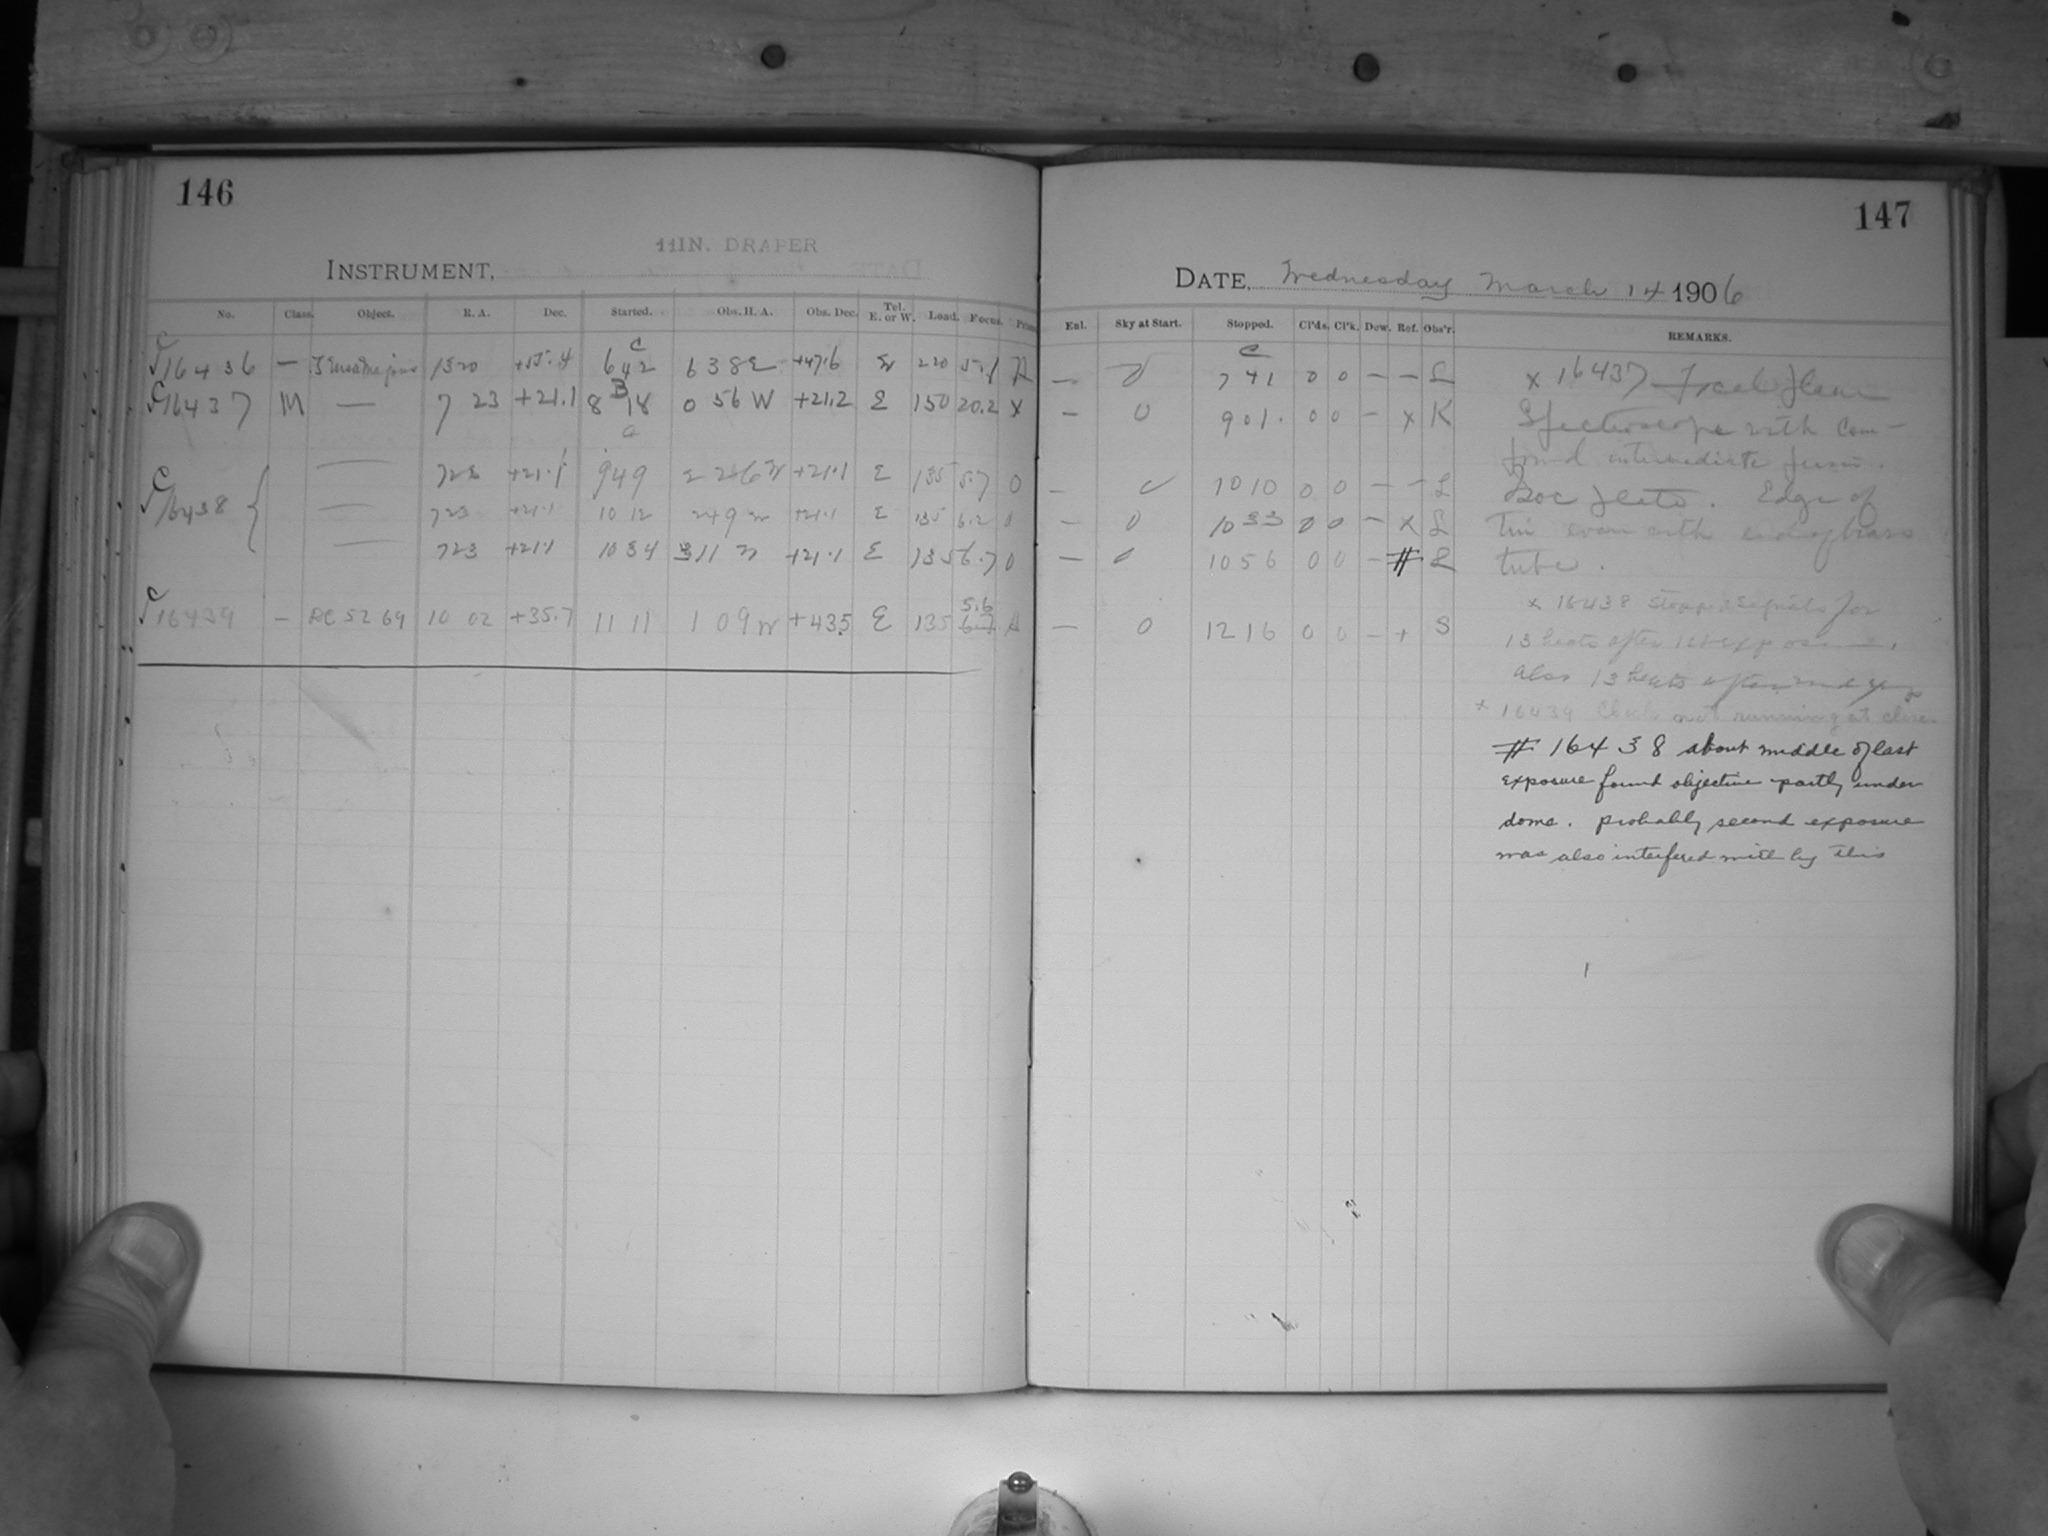 146
11IN. DRAPER
INSTRUMENT,
No. Class. Object. R. A. Dec. Started. Obs. H. A. Obs. Dec. Tel. E. or W. Load. Focus.
C
16436 — 1320 +55.4 642 638E +47.6 220
B
C16437 M — 7 23 +21.1 8 18 0 56 W +21.2 E 150 20.2 X
C
— 723 +21.1 949 +21.1 E 135 5.7 0
C16438 { — 723 +21.1 10 12 249 w +21.1 E 135 6.2 0
— 723 +21.1 1034 311 w +21.1 E 135 6.7 0
5.6
C16439 — DC 5269 10 02 +35.7 11 11 1 09 w +43.5 E 135 6.7 A
147
DATE, Wednesday March 14 1906
Enl. Sky at Start. Stopped. Cl'ds. Cl'k. Dew. Ref. Obs'r. REMARKS.
C
— 0 741 0 0 — — L
— 0 901. 0 0 — x K
— 1010 0 0 — — L
— 0 1033 0 0 — x L
— 0 1056 0 0 — # L
— 0 1216 0 0 — + S
x 16437 Focal Plane
Spectroscope with Com-
pound intermediate prism.
Edge of
tin even with end of brass
tube.
x 16438 stopped signals for
13 beats after 1st exposure,
also 13 beats after 2nd
x 16439 Clock not running at close
# 16438 about middle of last
exposure found objective partly under
dome. probably second exposure
was also interfered with by this